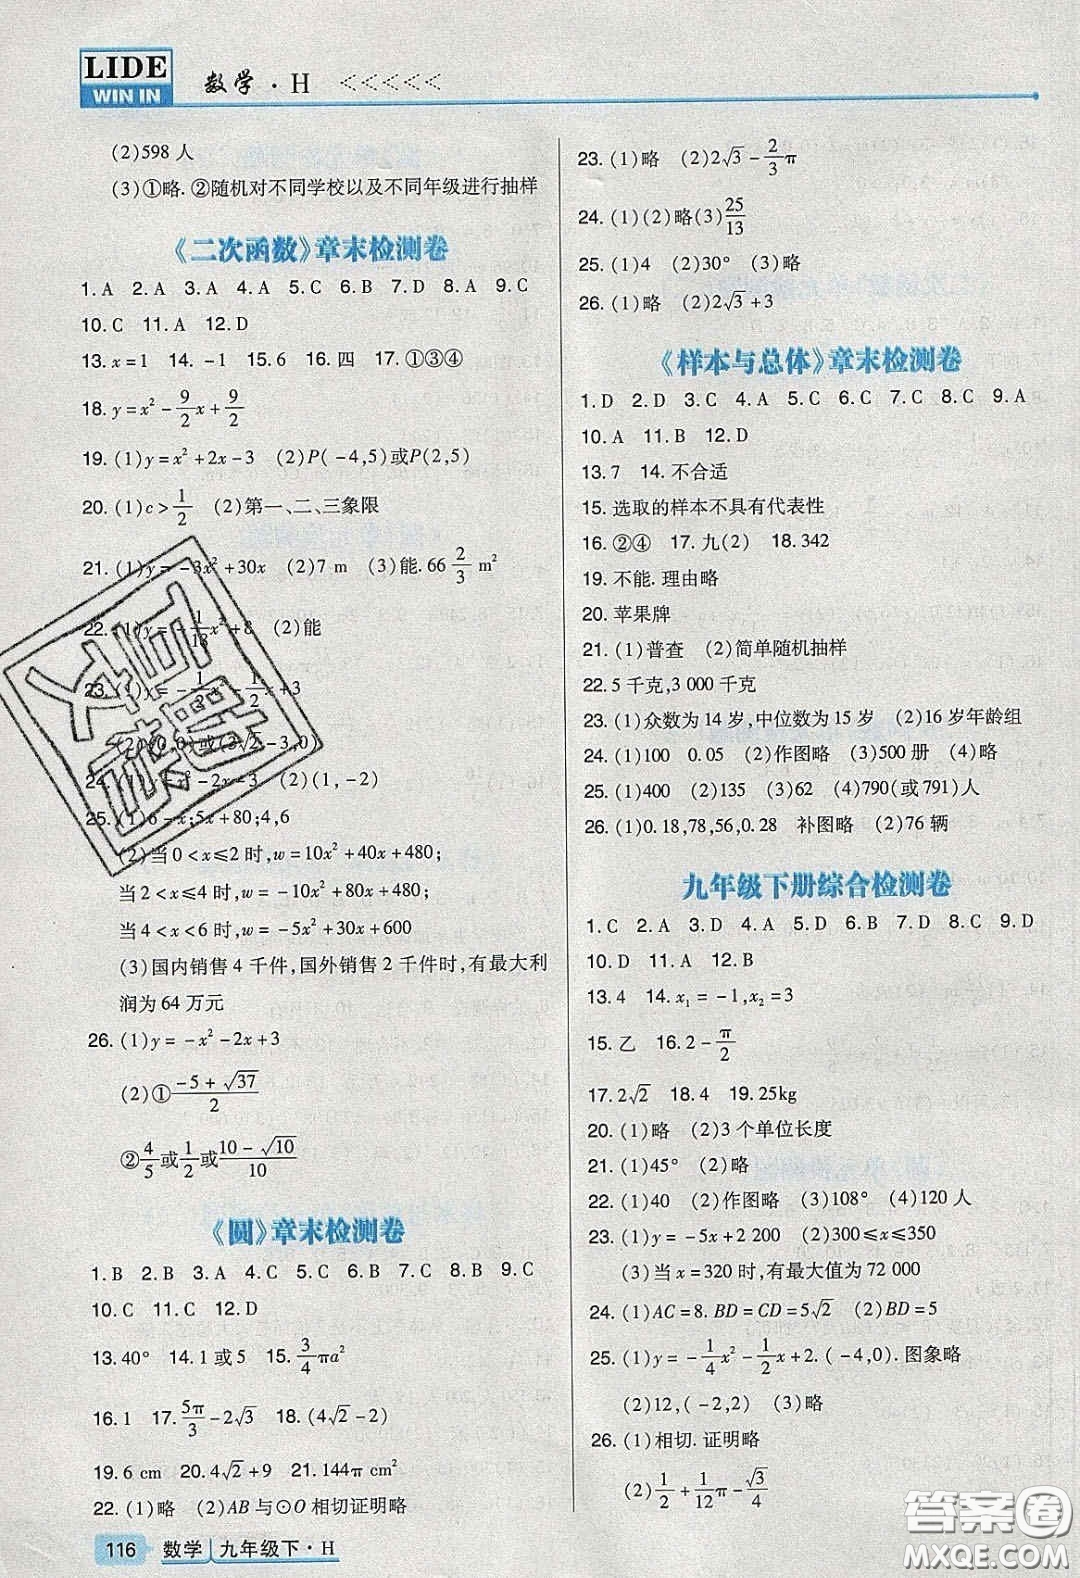 LIDE
WIN IN
数学·H <<<<<
(2)598 人
(3)①略. ②随机对不同学校以及不同年级进行抽样
《二次函数》章末检测卷
1. A 2. A 3. A 4. A 5. C 6. B 7. B 8. A 9. C
10. C 11. A 12. D
13. x=1 14. -1 15. 6 16. 四 17. ①③④
18. y=x²-9/2x+9/2
19. (1)y=x²+2x-3 (2)P(-4,5)或P(2,5)
20. (1)c>1/2 (2)第一、二、三象限
21. (1)y=-3x²+30x (2)7 m (3)能. 66 2/3 m²
22. (1)y=-1/18x²+8 (2)能
23. (1)y=-1/2x²-1/2x+3
(2)(0,0)或(3√2-3,0)
24. (1)y=x²-2x-3 (2)(1,-2)
25. (1)6-x;5x+80;4,6
(2)当 0<x≤2 时,w=10x²+40x+480;
当 2<x≤4 时,w=-10x²+80x+480;
当 4<x<6 时,w=-5x²+30x+600
(3)国内销售 4 千件,国外销售 2 千件时,有最大利
润为 64 万元
26. (1)y=-x²-2x+3
(2)①(-5+√37)/2
②4/5或1/2或(10-√10)/10
《圆》章末检测卷
1. B 2. B 3. A 4. C 5. C 6. B 7. C 8. B 9. C
10. C 11. C 12. D
13. 40° 14. 1 或 5 15. 3/4πa²
16. 1 17. 5π/3-2√3 18. (4√2-2)
19. 6 cm 20. 4√2+9 21. 144π cm²
22. (1)略 (2)AB 与⊙O 相切证明略
116 数学 九年级下·H
23. (1)略 (2)2√3-2/3π
24. (1)(2)略(3)25/13
25. (1)4 (2)30° (3)略
26. (1)略 (2)2√3+3
《样本与总体》章末检测卷
1. D 2. D 3. C 4. A 5. C 6. C 7. C 8. C 9. A
10. A 11. B 12. D
13. 7 14. 不合适
15. 选取的样本不具有代表性
16. ②④ 17. 九(2) 18. 342
19. 不能. 理由略
20. 苹果牌
21. (1)普查 (2)简单随机抽样
22. 5 千克,3 000 千克
23. (1)众数为 14 岁,中位数为 15 岁 (2)16 岁年龄组
24. (1)100 0.05 (2)作图略 (3)500 册 (4)略
25. (1)400 (2)135 (3)62 (4)790(或 791)人
26. (1)0.18,78,56,0.28 补图略 (2)76 辆
九年级下册综合检测卷
1. C 2. A 3. D 4. A 5. D 6. B 7. D 8. C 9. D
10. D 11. A 12. B
13. 4 14. x₁=-1,x₂=3
15. 乙 16. 2-π/2
17. 2√2 18. 4 19. 25kg
20. (1)略 (2)3 个单位长度
21. (1)45° (2)略
22. (1)40 (2)作图略 (3)108° (4)120 人
23. (1)y=-5x+2 200 (2)300≤x≤350
(3)当 x=320 时,有最大值为 72 000
24. (1)AC=8. BD=CD=5√2 (2)BD=5
25. (1)y=-1/4x²-1/2x+2. (-4,0). 图象略
(2)12,(-2,2) (3)略
26. (1)相切. 证明略
(2)1/2+1/12π-√3/4
答案卷
MXQE.COM